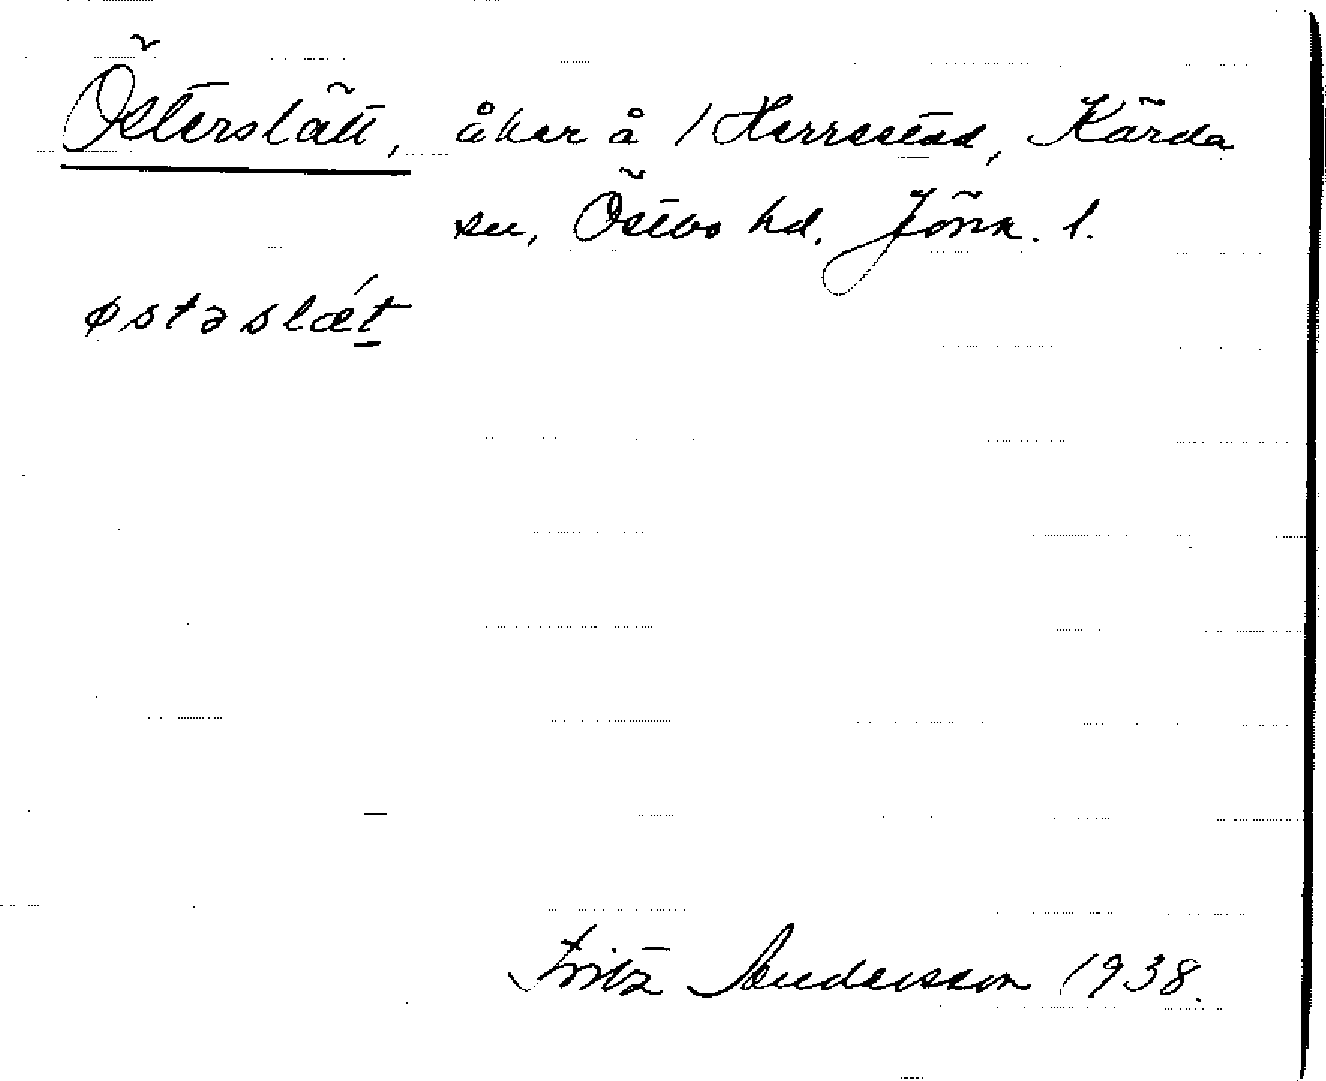 Österslätt, åker å 1 Herrestad, Kärda
sn, Östbo hd. Jönk. l.
østəslæ´t
Fritz Andersson 1938.